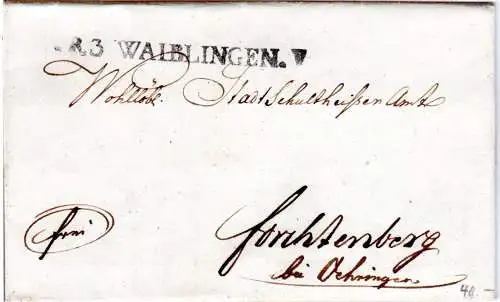 .R.3 WAIBLINGEN.
Wohllöbl. Stadtschultheißen Amt
frei
Forchtenberg
bei Oehringen
40.-